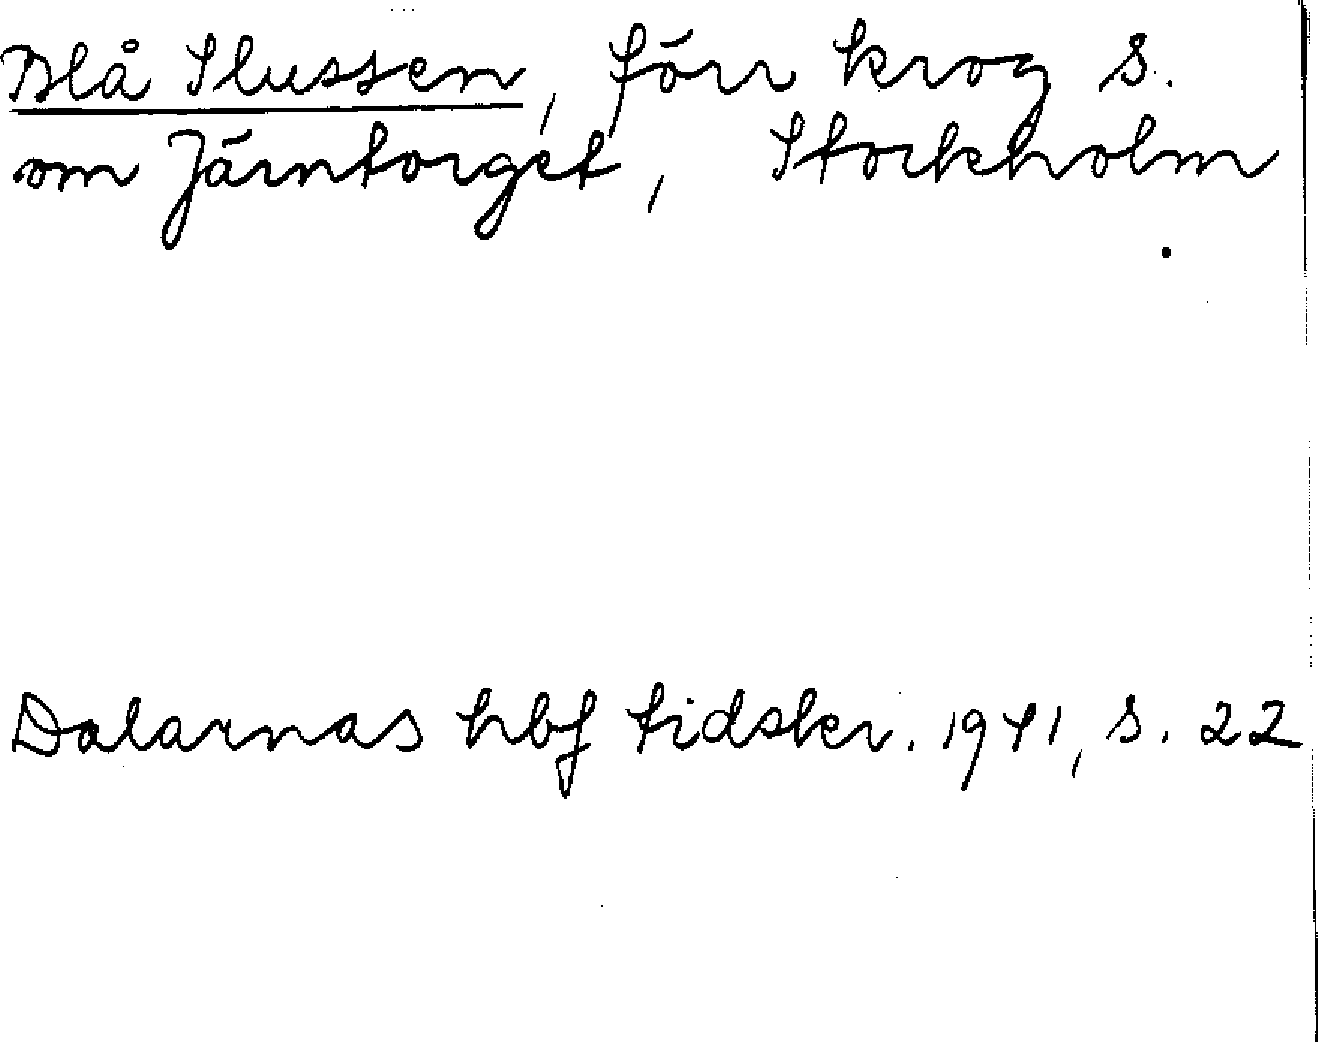 Blå Slussen, förr krog s.
om Järntorget, Stockholm
Dalarnas hbf tidskr. 1941, s. 22